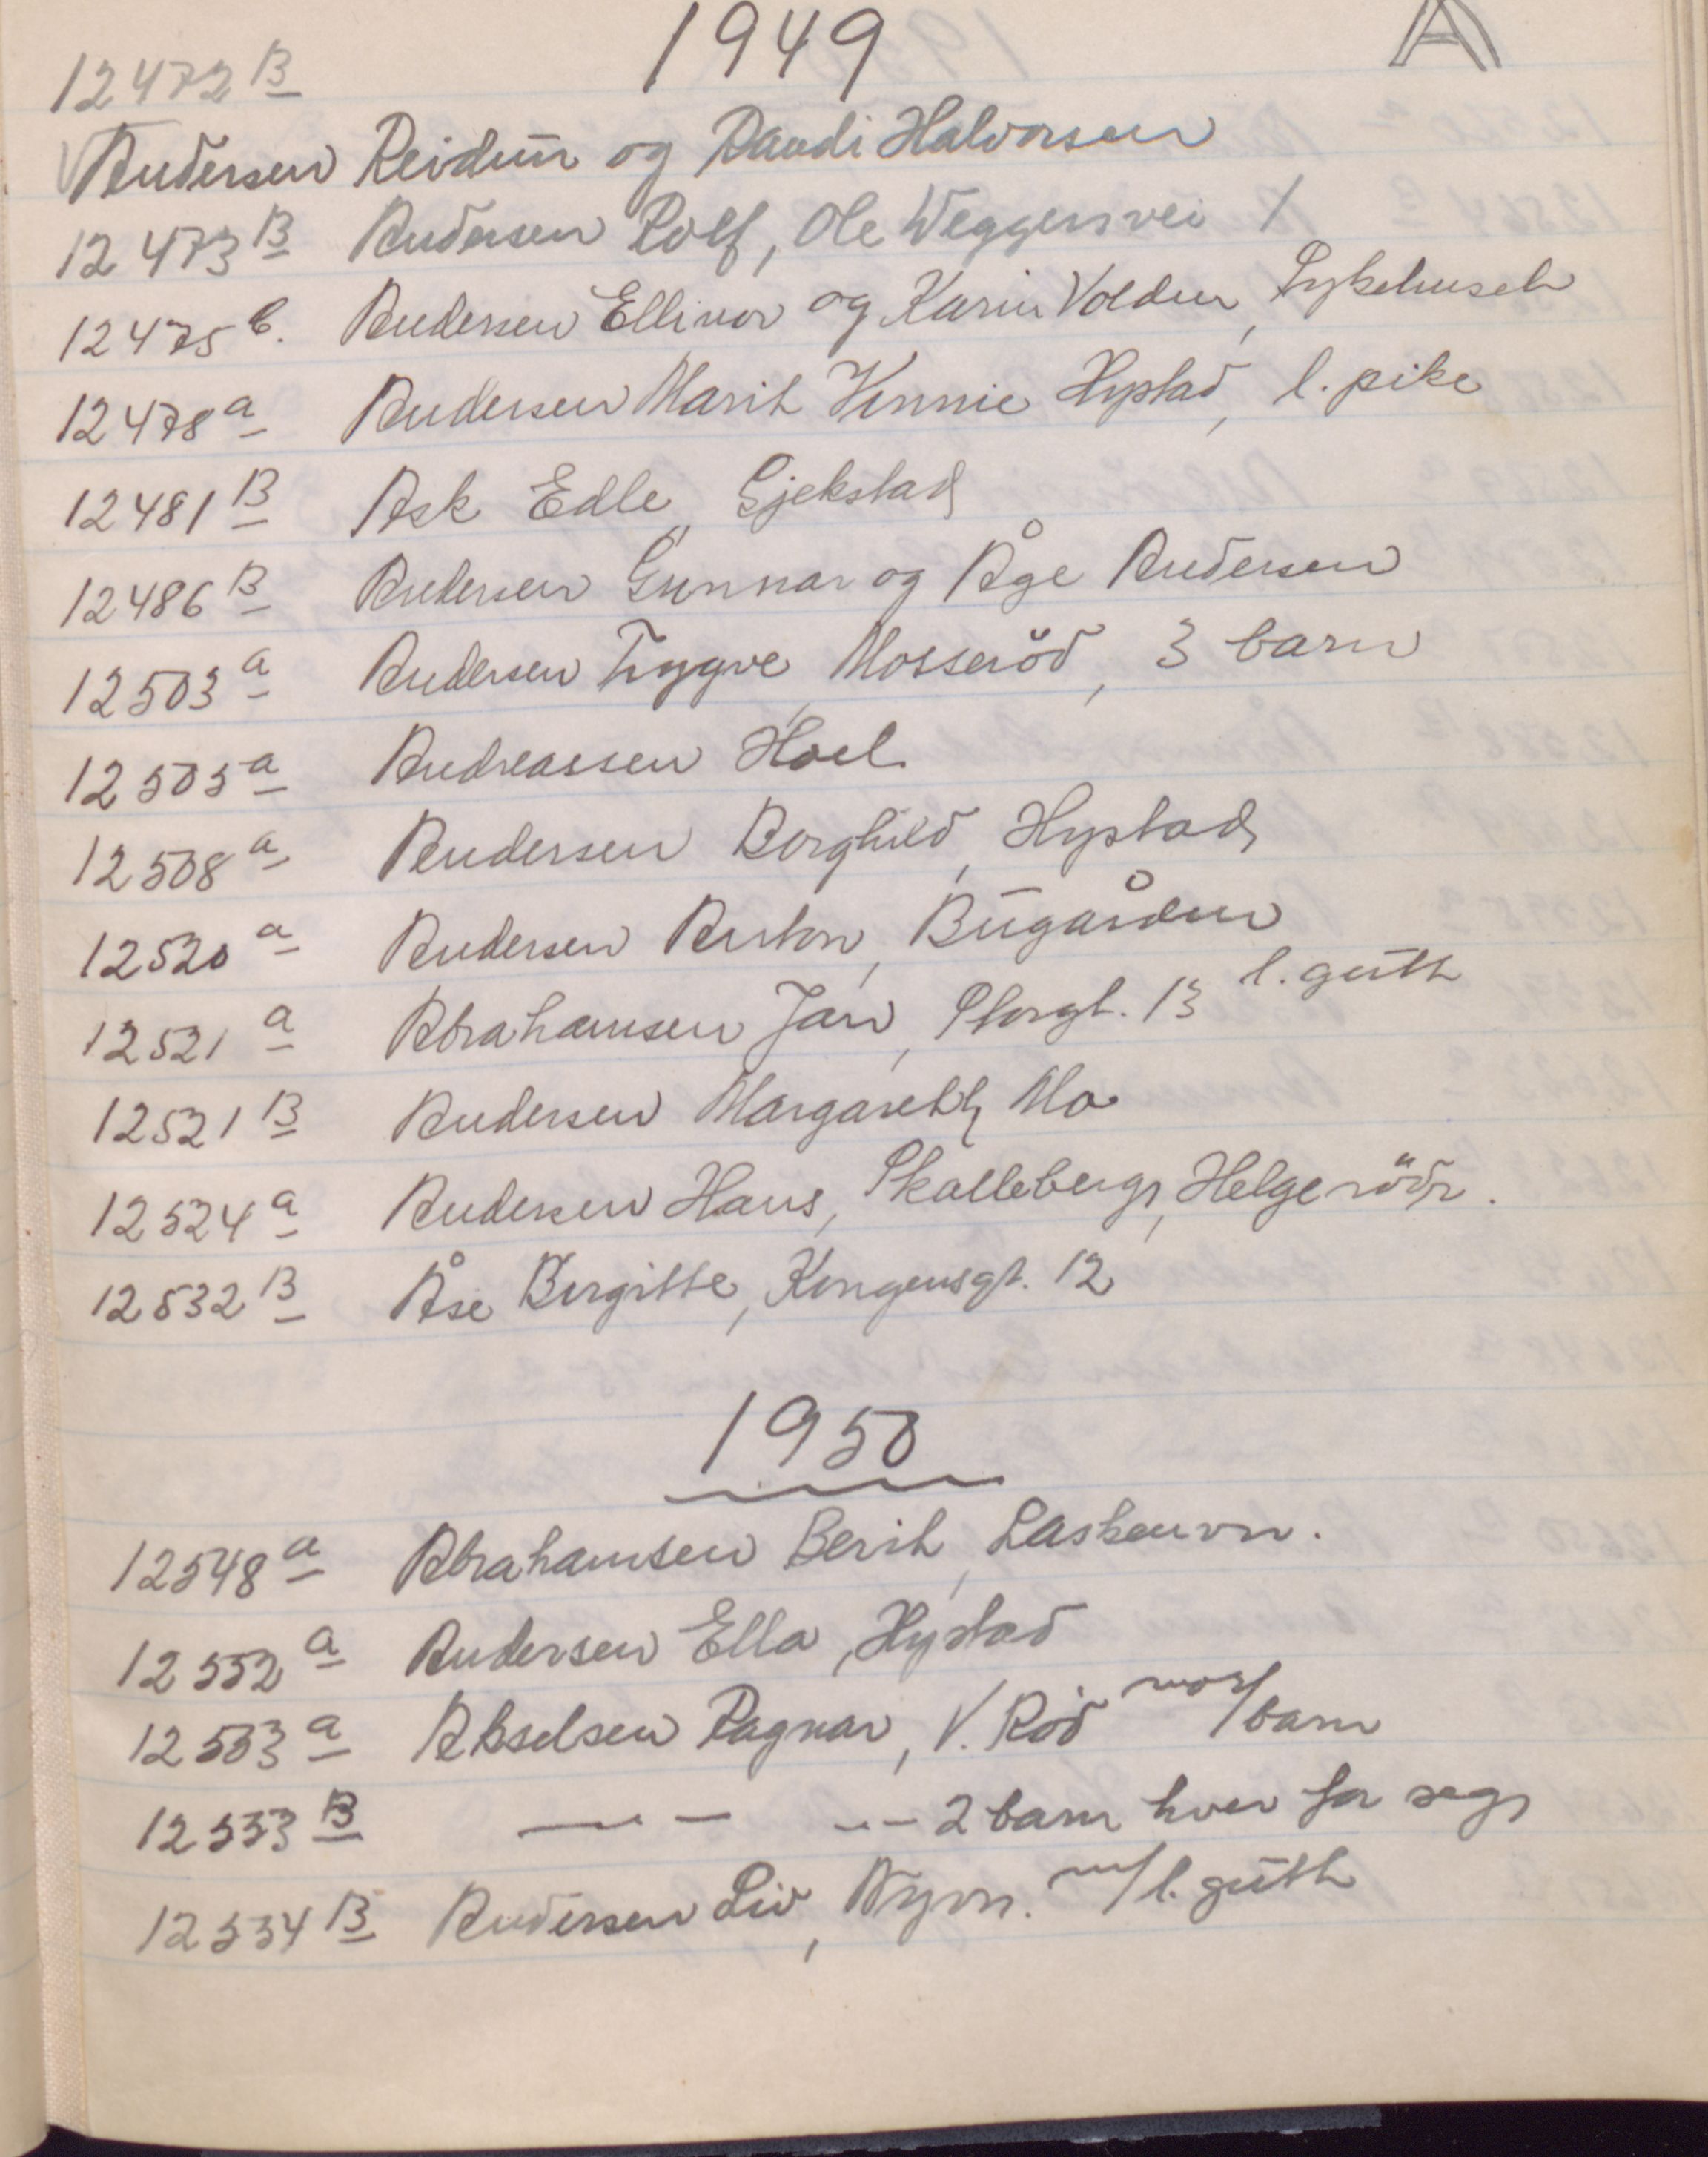 1949 A
12472 B
Andersen Reidun og Randi Halvorsen
12473 B Andersen Rolf, Ole Weggersvei 1
12475 b. Andersen Ellinor og Karin Volden, Sykehuset
12478 a Andersen Marit Vinnie Hystad, l. pike
12481 B Ask Edle, Gjekstad
12486 B Andersen Gunnar og Åge Andersen
12503 a Andersen Trygve, Mosseröd, 3 barn
12505 a Andreassen Hoel
12508 a Andersen Borghild, Hystad
12520 a Andersen Anton, Bugården
12521 a Abrahamsen Jan, Storgt. 13 l. gutt
12521 B Andersen Margareth, Mo
12524 a Andersen Hans, Skalleberg, Helgerödr.
12532 B Åse Birgitte, Kongensgt. 12
1950
12548 a Abrahamsen Berit, Laskenvn.
12552 a Andersen Ella, Hystad
12553 a Akselsen Ragnar, V. Röd mor/barn
12553 B — - — -- 2 barn hver for seg
12554 B Andersen Liv, Nyvn. m/l. gutt